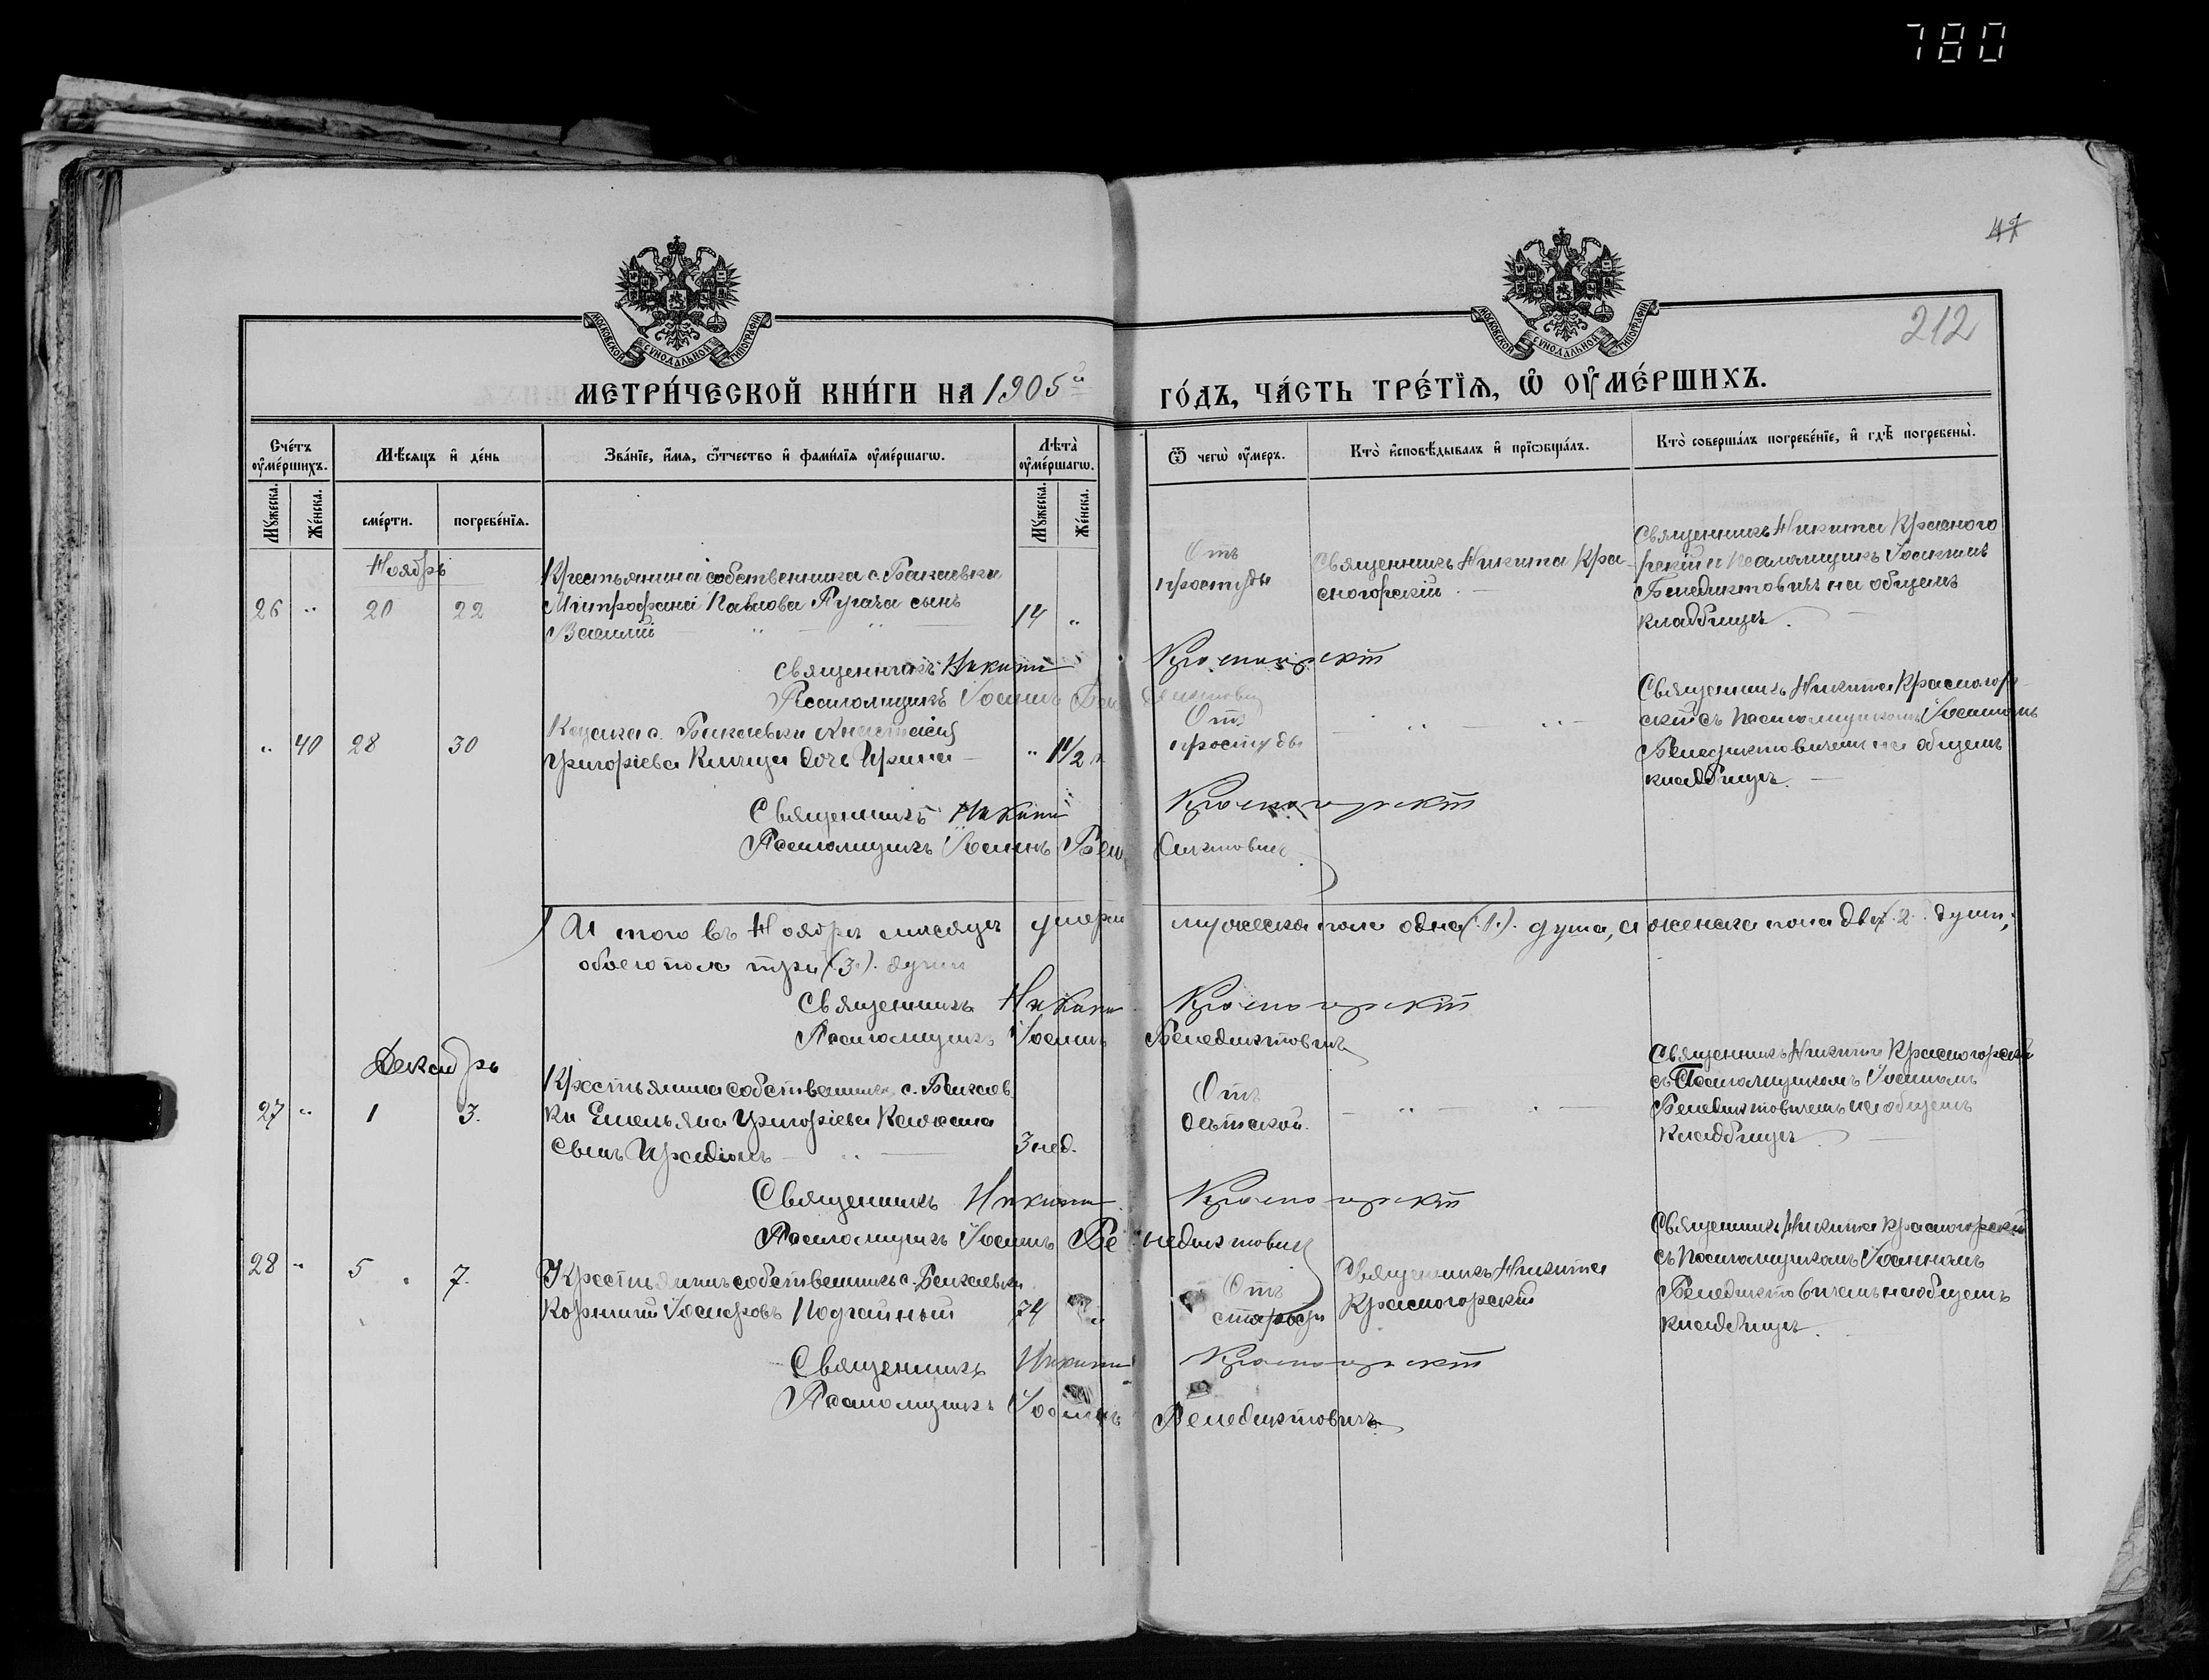 780
47
212
МОСКОВСКОЙ СѴНОДАЛЬНОЙ ТИПОГРАФІИ
МОСКОВСКОЙ СѴНОДАЛЬНОЙ ТИПОГРАФІИ
МЕТРИ́ЧЕСКОЙ КНИ́ГИ НА 1905й ГО́ДЪ, ЧА́СТЬ ТРЕ́ТІѦ, Ѡ ОУ҆МЕ́РШИХЪ.
Сче́тъ оу҆ме́ршихъ.
Мѣ́сѧцъ и҆ де́нь
Зва́нїе, и҆́мѧ, ѻ҆́тчество и҆ фами́лїѧ оу҆ме́ршагѡ.
Лѣ́та оу҆ме́ршагѡ.
Ѿ чегѡ̀ оу҆́меръ.
Кто̀ и҆сповѣ́дывалъ и҆ прїѡбща́лъ.
Кто̀ соверша́лъ погребе́нїе, и҆ гдѣ̀ погребены̀.
Мꙋ́жеска.
Же́нска.
сме́рти.
погребе́нїѧ.
Мꙋ́жеска.
Же́нска.
Ноябрь
26 " 20 22
Крестьянина собственника с. Бакаевки
Митрофана Павлова Пугача сынъ
Василій
14 "
Отъ
простуды
Священникъ Никита Кра
сногорскій
Священникъ Никита Красного
рскій и Псаломщикъ Іоаннъ
Бенедиктовичъ на общемъ
кладбищѣ.
Священникъ Никита Красногорскій
Псаломщикъ Іоаннъ Бенедиктовичъ
" 40 28 30
Козака с. Бакаевки Анастасія
Григоріева дочь Ирина
" 1 1/2
Отъ
простуды
Священникъ Никита Красногор
скій съ Псаломщикомъ Іоанномъ
Бенедиктовичемъ на общемъ
кладбищѣ.
Священникъ Никита Красногорскій
Псаломщикъ Іоаннъ Бенедиктовичъ
Итого въ Ноябрѣ мѣсяцѣ умерло мужеска пола одна (1.) душа, а женска пола двѣ 2. души;
обоего пола три (3.) души
Священникъ Никита Красногорскій
Псаломщикъ Іоаннъ Бенедиктовичъ
Декабрь
27 " 1 3.
Крестьянина собственника с. Бакаев
ки Емельяна Григоріева
сынъ Иродіонъ
3 нед.
Отъ
дѣтской.
Священникъ Никита Красногорскій
съ Псаломщикомъ Іоанномъ
Бенедиктовичемъ на общемъ
кладбищѣ
Священникъ Никита Красногорскій
Псаломщикъ Іоаннъ Бенедиктовичъ
28 " 5 7.
Крестьянинъ собственникъ с. Бакаевки
Корнилій Іосифовъ Подгайный
74 "
Отъ
старости
Священникъ Никита
Красногорскій
Священникъ Никита Красногорскій
съ Псаломщикомъ Іоанномъ
Бенедиктовичемъ на общемъ
кладбищѣ.
Священникъ Никита Красногорскій
Псаломщикъ Іоаннъ Бенедиктовичъ